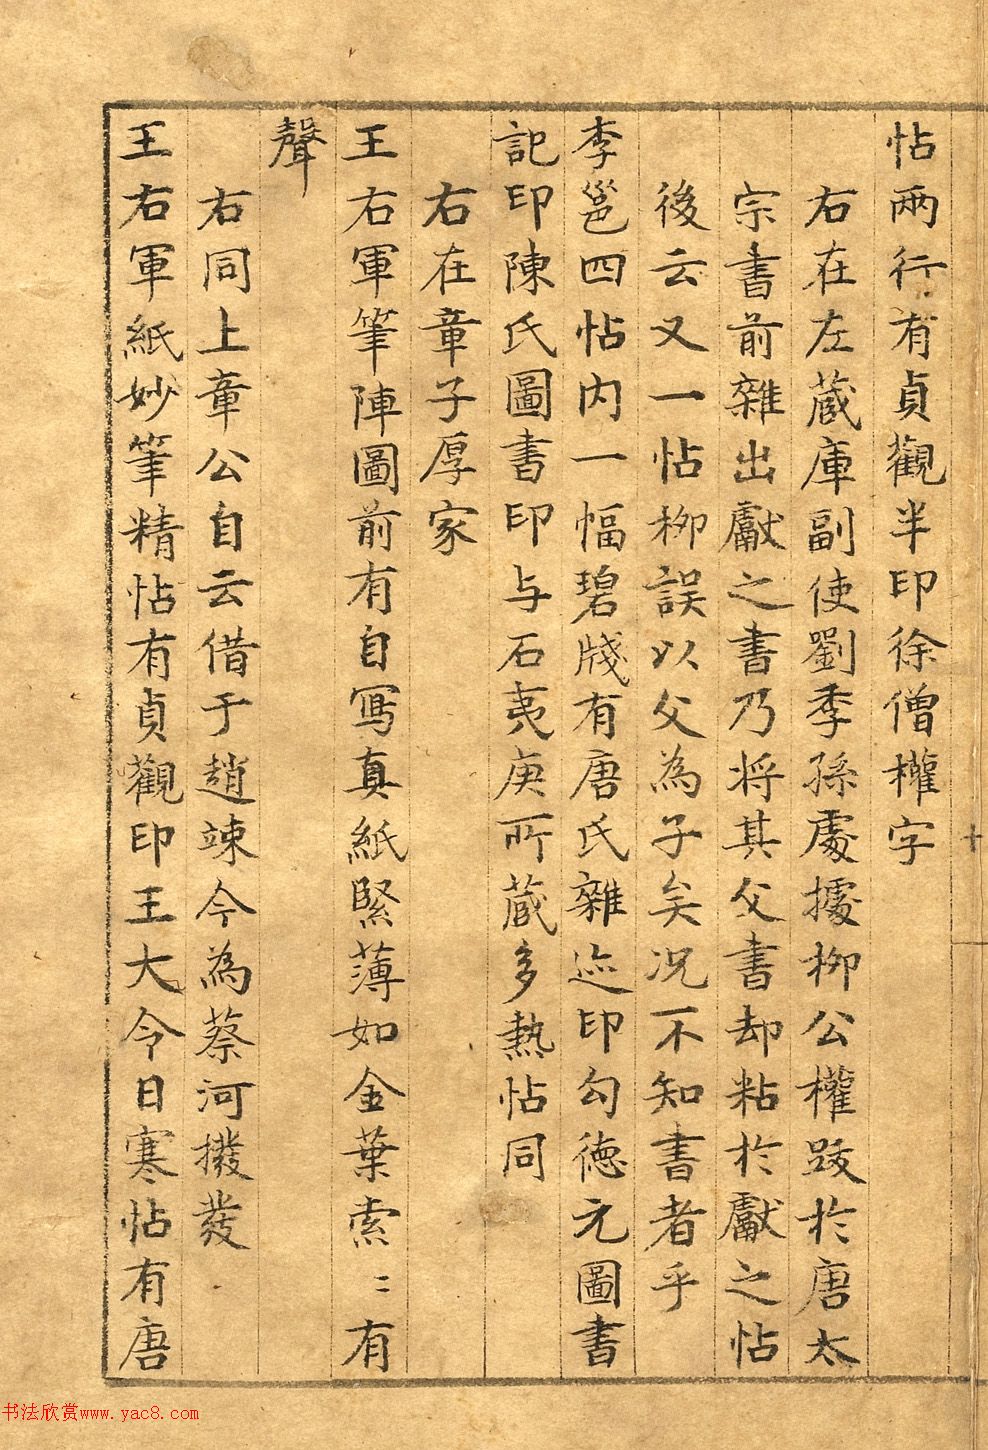 帖兩行有貞觀半印徐僧權字
右在左蔵庫副使劉季孫處據柳公權跋於唐太
宗書前雜出獻之書乃将其父書却粘於獻之帖
後云又一帖柳誤以父為子矣况不知書者乎
李邕四帖内一幅碧牋有唐氏雜迹印勾德元圖書
記印陳氏圖書印与石夷庚所蔵多熱帖同
右在章子厚家
王右軍筆陣圖前有自寫真紙緊薄如金葉索〻有
聲
右同上章公自云借于趙竦今為蔡河撥發
王右軍紙妙筆精帖有貞觀印王大令日寒帖有唐
十
书法欣赏www.yac8.com